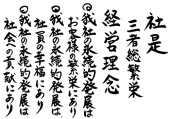 社是
三者総繁栄
経営理念
◎我社の永続的発展は
お客様の繁栄にあり
◎我社の永続的発展は
社員の幸福にあり
◎我社の永続的発展は
社会への貢献にあり